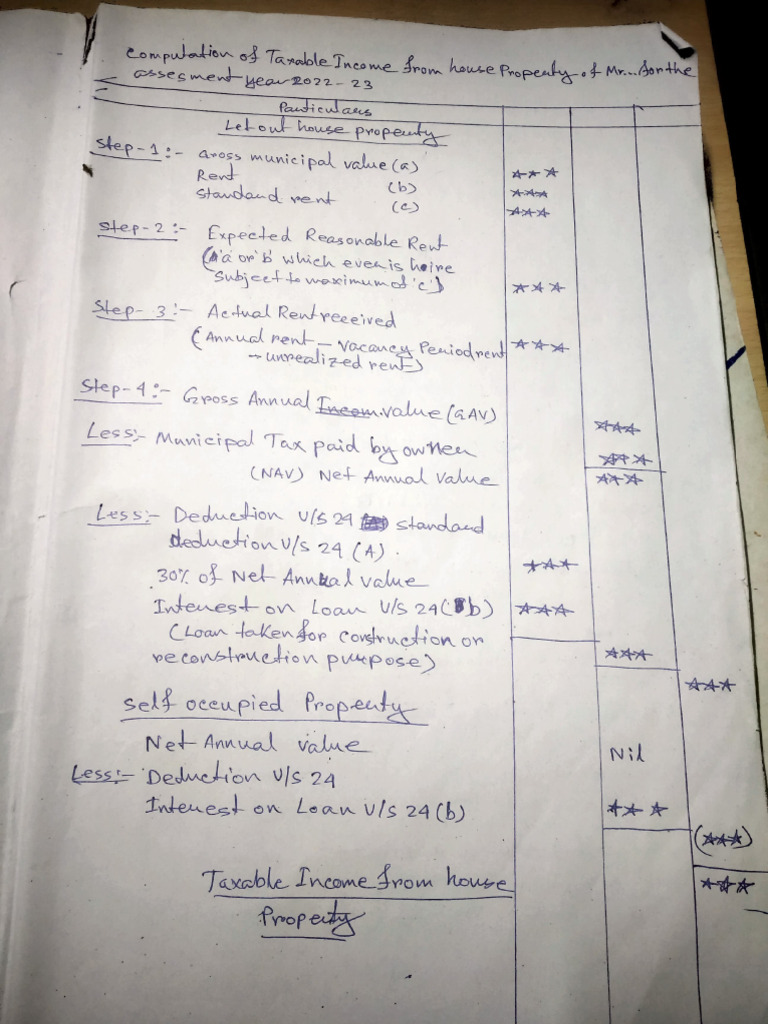 Computation of Taxable Income from house Property of Mr... for the
assesment year 2022-23
Particulars
Let out house property
Step-1:- Gross municipal value (a) ***
Rent (b) ***
Standard rent (c) ***
Step-2:- Expected Reasonable Rent
('a' or 'b' which ever is
Subject to maximum of 'c') ***
Step-3:- Actual Rent received
(Annual rent - Vacancy Period rent ***
- unrealized rent)
Step-4:- Gross Annual value (GAV) ***
Less:- Municipal Tax paid by owner ***
(NAV) Net Annual Value ***
Less:- Deduction U/S 24 standard
deduction U/S 24 (A).
30% of Net Annual value ***
Interest on Loan U/S 24(b) ***
(Loan taken for construction or
reconstruction purpose) ***
***
Self occupied Property
Net Annual value Nil
Less:- Deduction U/S 24
Interest on Loan U/S 24(b) ***
(***)
Taxable Income from house ***
Property